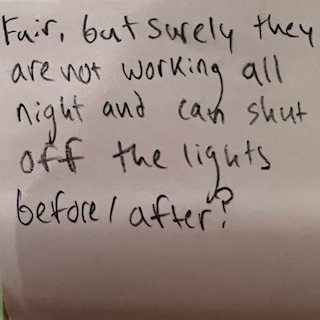 Fair, but surely they
are not working all
night and can shut
off the lights
before/after?